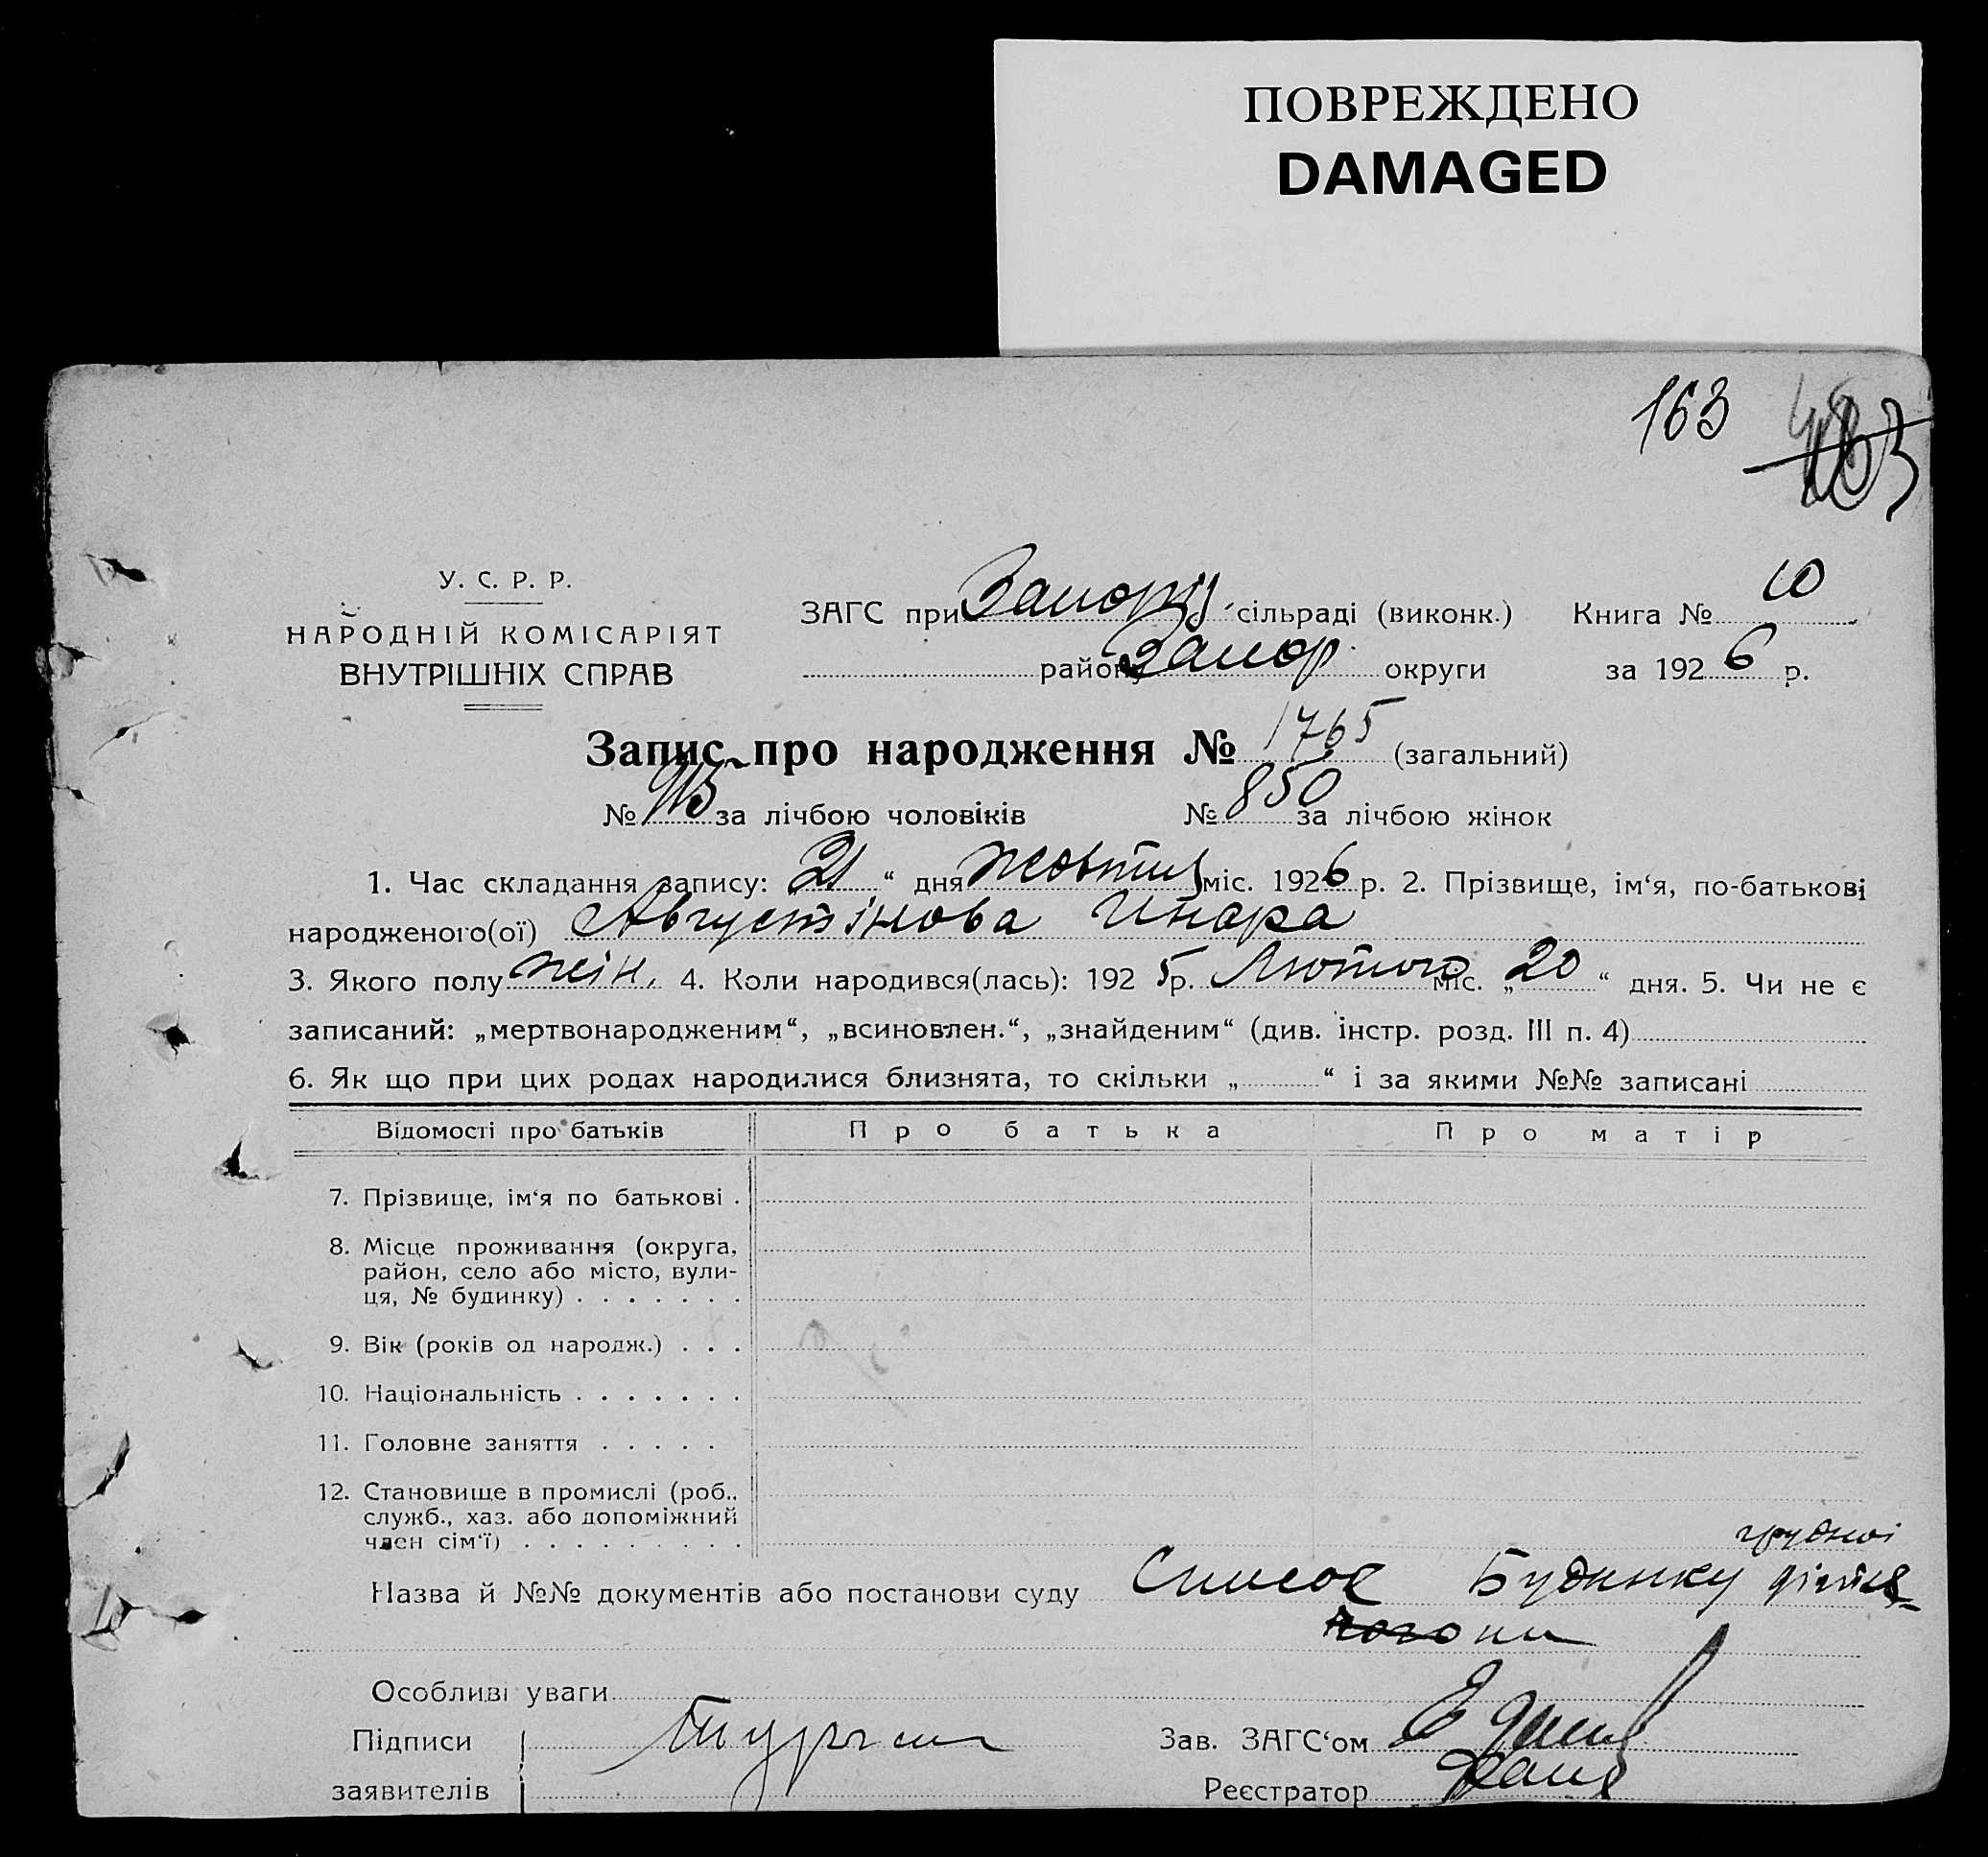 ПОВРЕЖДЕНО
DAMAGED
163
У. С. Р. Р.
НАРОДНІЙ КОМІСАРІЯТ
ВНУТРІШНІХ СПРАВ
ЗАГС при сільраді (виконк.) Книга № 10
району Запор. округи за 1926 р.
Запис про народження № 1765 (загальний)
№ 915 за лічбою чоловіків № 850 за лічбою жінок
1. Час складання запису: „21“ дня Жовтня міс. 1926 р. 2. Прізвище, ім‘я, по-батькові
народженого(ої) Августінова Инара
3. Якого полу жін. 4. Коли народився(лась): 1925 р. Лютого міс. „20“ дня. 5. Чи не є
записаний: „мертвонародженим“, „всиновлен.“, „знайденим“ (див. інстр. розд. III п. 4)
6. Як що при цих родах народилися близнята, то скільки „ “ і за якими №№ записані
Відомості про батьків Про батька Про матір
7. Прізвище, ім‘я по батькові .
8. Місце проживання (округа,
район, село або місто, вули-
ця, № будинку) . . . . . . .
9. Вік (років од народж.) . . .
10. Національність . . . . . . .
11. Головне заняття . . . . .
12. Становище в промислі (роб.,
служб., хаз. або допоміжний
член сім‘ї) . . . . . . . . .
грудної
Назва й №№ документів або постанови суду Список Будинку
Особливі уваги
Підписи Зав. ЗАГС‘ом
заявителів Реєстратор